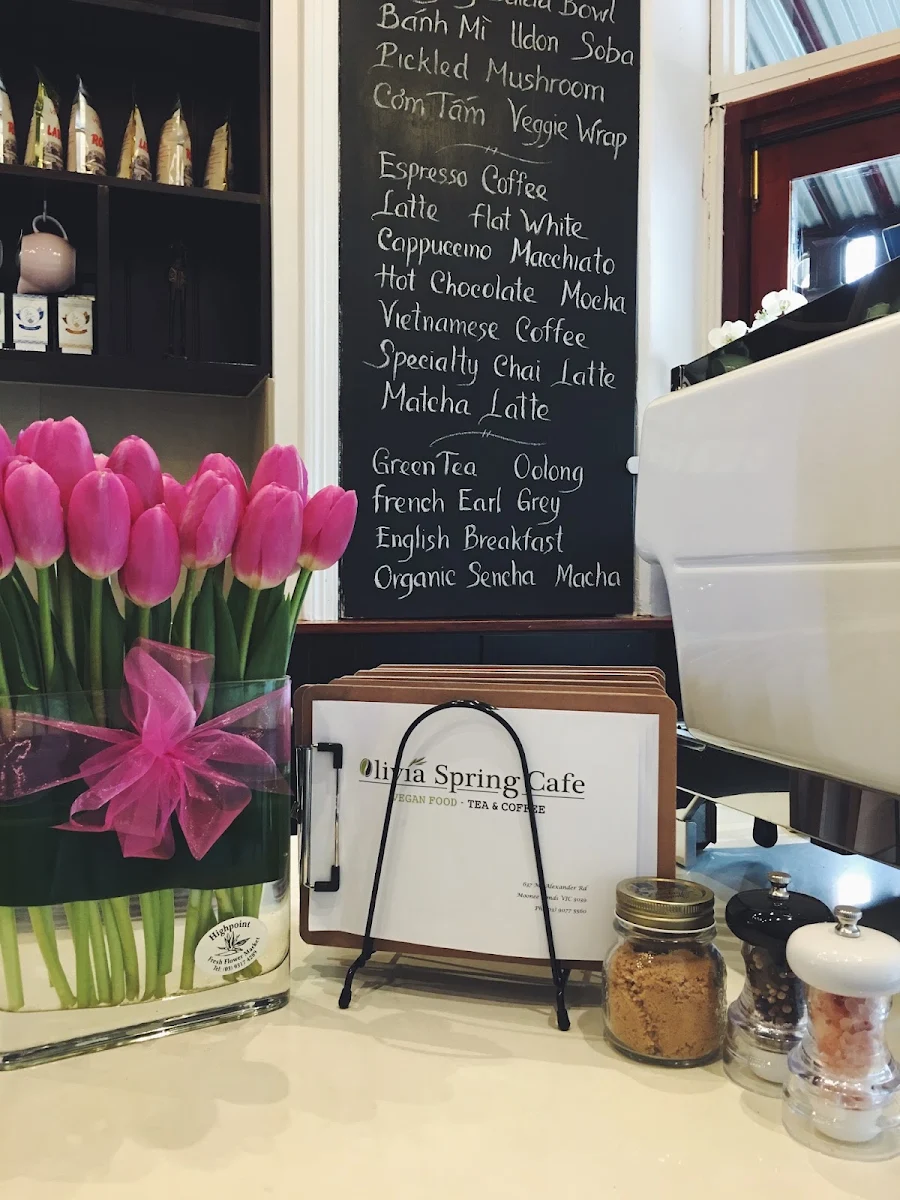 Salad Bowl
Bánh Mì Udon Soba
Pickled Mushroom
Cơm Tấm Veggie Wrap
Espresso Coffee
Latte Flat White
Cappuccino Macchiato
Hot Chocolate Mocha
Vietnamese Coffee
Specialty Chai Latte
Matcha Latte
Green Tea Oolong
French Earl Grey
English Breakfast
Organic Sencha Macha
Olivia Spring Cafe
VEGAN FOOD - TEA & COFFEE
Alexander Rd
VIC 3039
9077
Highpoint
Fresh Flower Market
Tel: (03) 9317